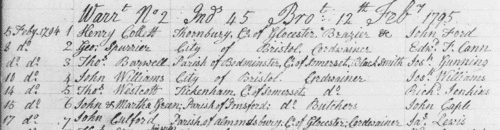 Warrt. No. 2 Ind 45 Brot. 12th Feby. 1795
5 Feby. 1794 1 Henry Collett Thornbury, C. of Glocester Brazier & John Ford
8 do. 2 Geo. Spurrier City of Bristol Cordwainer Edwd. T. Cann
do. do. 3 Thos. Barwell Parish of Bedminster, C. of Somerset, Black Smith Jos. Gunning
10 do. 4 John Williams City of Bristol Cordwainer Jos. Williams
14 do. 5 Thos. Westcott Tickenham, C. of Somerset do. Richd. Jenkins
15 do. 6 John & Martha Green, Parish of Butchers John Caple
17 do. 7 John Parish of Almondsbury, C. of Glocester, Cordwainer Jas. Lewis